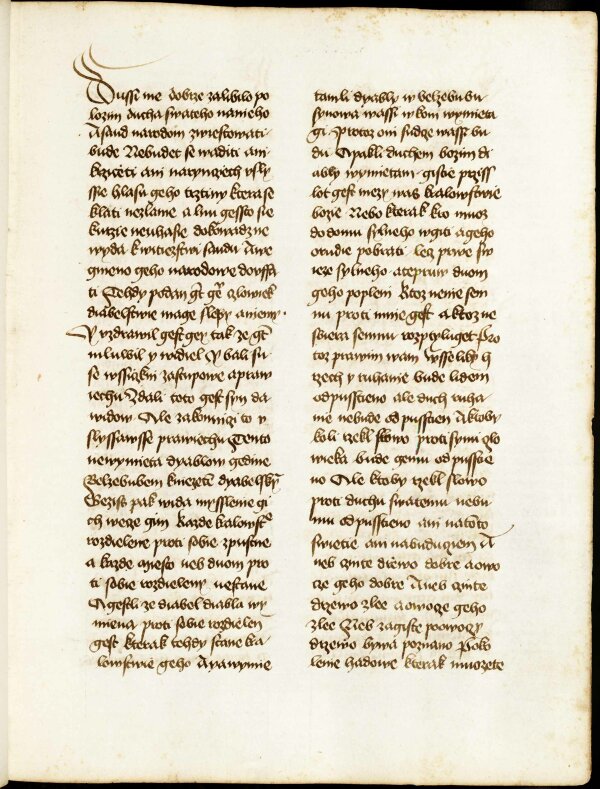 Dussi me dobrze zalibilo po
lozim ducha swateho naneho
A saud narodom zwiestowati
bude Nebudet se waditi ani
krziczeti ani natynziech vsly
ssie hlasu geho trztiny kterase
klati nezlame a lnu gessto sie
kurzie neuhasie dokowadz ne
wyda k witiezstwi saudu A we
gmeno geho narodowe daussa
ti Tehdy podan gt gemu czlowiek
diabelstwie mage slepy a niemy
Y vzdrawil gest gey tak ze gt
mluwil y widiel Y bali su
se wssiczkni zastupowe a praw
iechu Zdali toto gest syn da
widow Ale zakonnizi to y
slyssawsse prawiechu Tento
newymieta dyablow gedine
Belzebubem kniezetem dyabelskym
Gezist pak wida mysslenie gi
ch wece gim Kazde kralowstwie
rozdielene proti sobie zpustne
a kazde miesto neb duom pro
ti sobie rozdieleny nestane
A gestli ze diabel diabla wy
mieta proti sobie rozdielen
gest kterak tehdy stane kra
lowstwie geho A yawymie
tamli dyably w belzebubu
synowa wassi w kom wymieta
gi Protoz oni sudze wassi bu
du A pakli duchem bozim di
ably wymietam gistie prziss
lot gest mezy was kralowstwie
bozie Nebo kterak kto muoz
do domu sylneho wgiti a geho
orudie pobrati lez prwe sw
ieze sylneho a teprauw duom
geho popleni Ktoz nenie sem
nu proti mnie gest a ktoz ne
sbiera semnu rozptyluget Pro
toz prawim wam Wsseliky h
rzech y ruhanie bude lidem
odpusstieno ale duch ruha
nie nebude odpusstien A ktoby
koli rzekl slowo proti synu czlo
wieka bude gemu odpusstie
no Ale ktoby rzekl slowo
proti duchu swatemu nebu
mu odpusstieno ani natoto
swietie ani nabuduziem A
neb czinte drzewo dobre a owo
cze geho dobre A neb czinte
drzewo zlee a owoze geho
zlee Neb zagiste po owozy
drzewo bywa poznano Poko
lenie hadowe kterak muozete